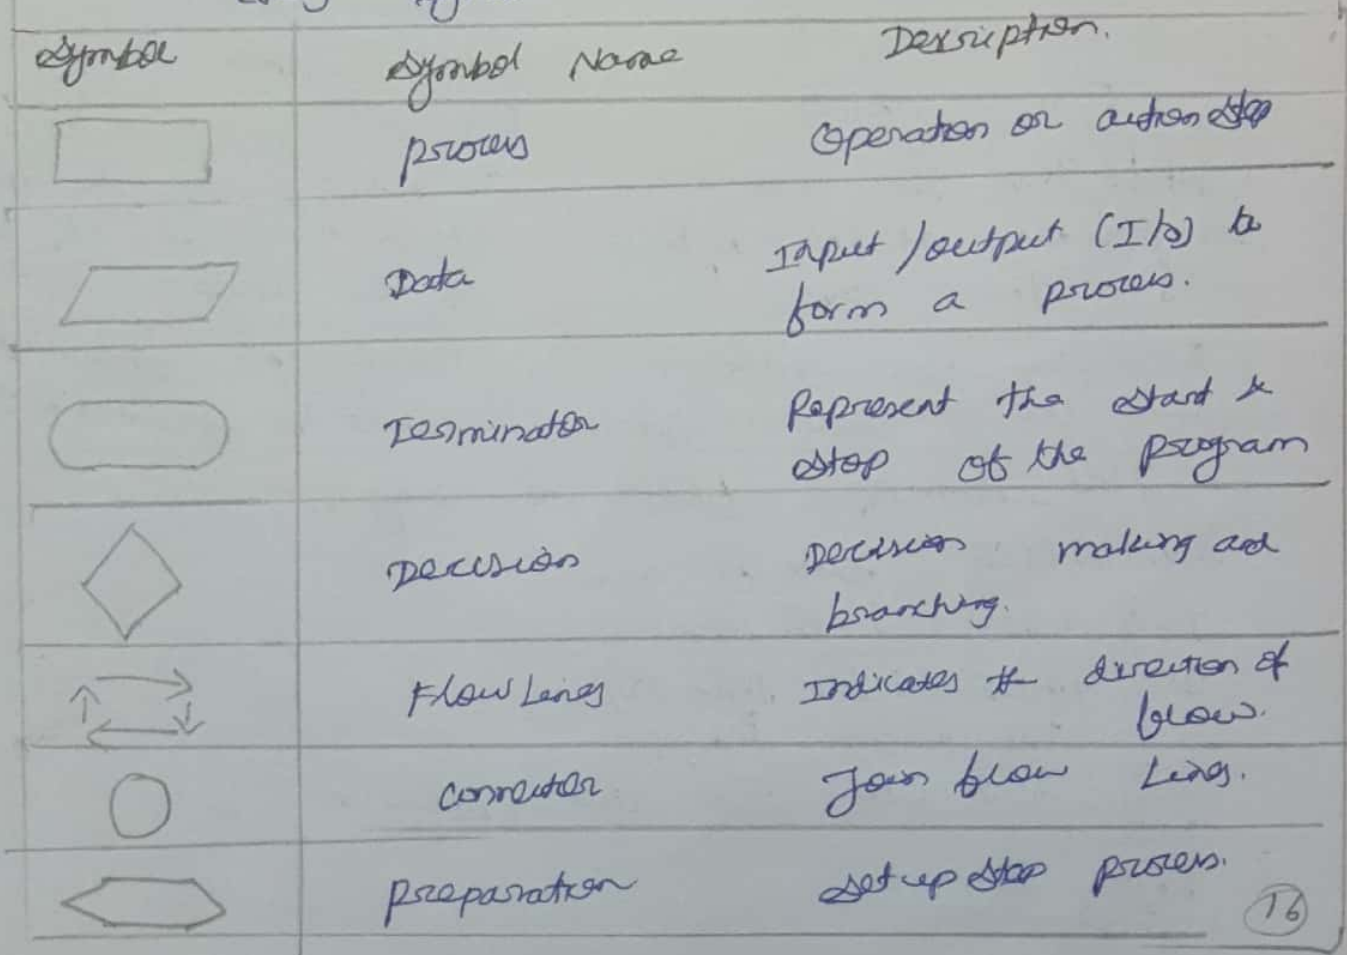 Symbol Symbol Name Description.
process Operation or action step
Data Input / output (I/o) to
form a process.
Terminator Represent the start &
stop of the program
Decision Decision making and
branching.
Flow Lines Indicates the direction of
flow.
connector Join flow Lines.
preparation set up step process.
16